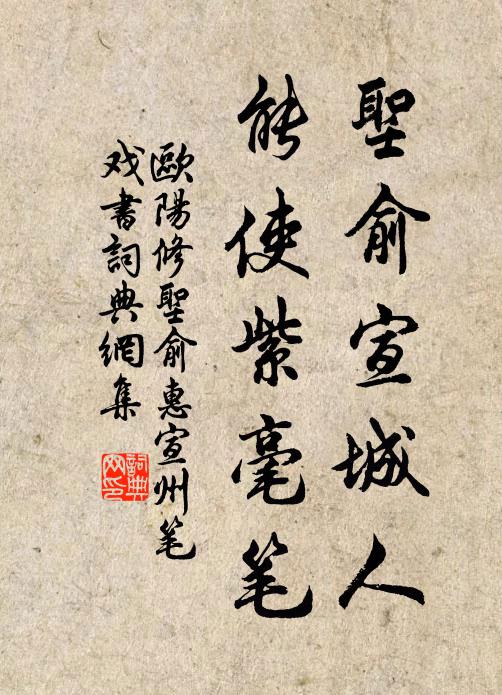 聖俞宣城人
能使紫毫笔
歐陽修聖俞惠宣州笔
戏書詞典網集
詞典
网印